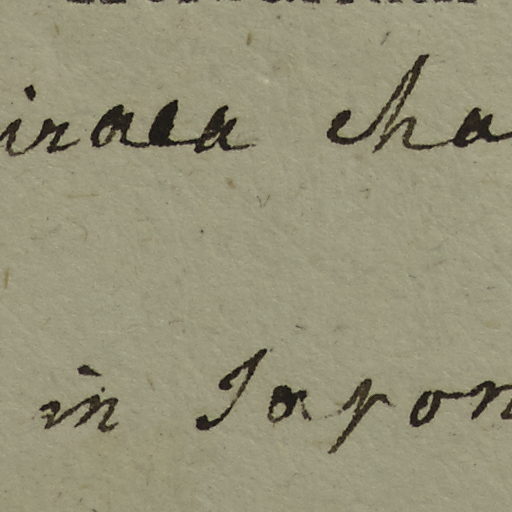 iraea cha
in Japon